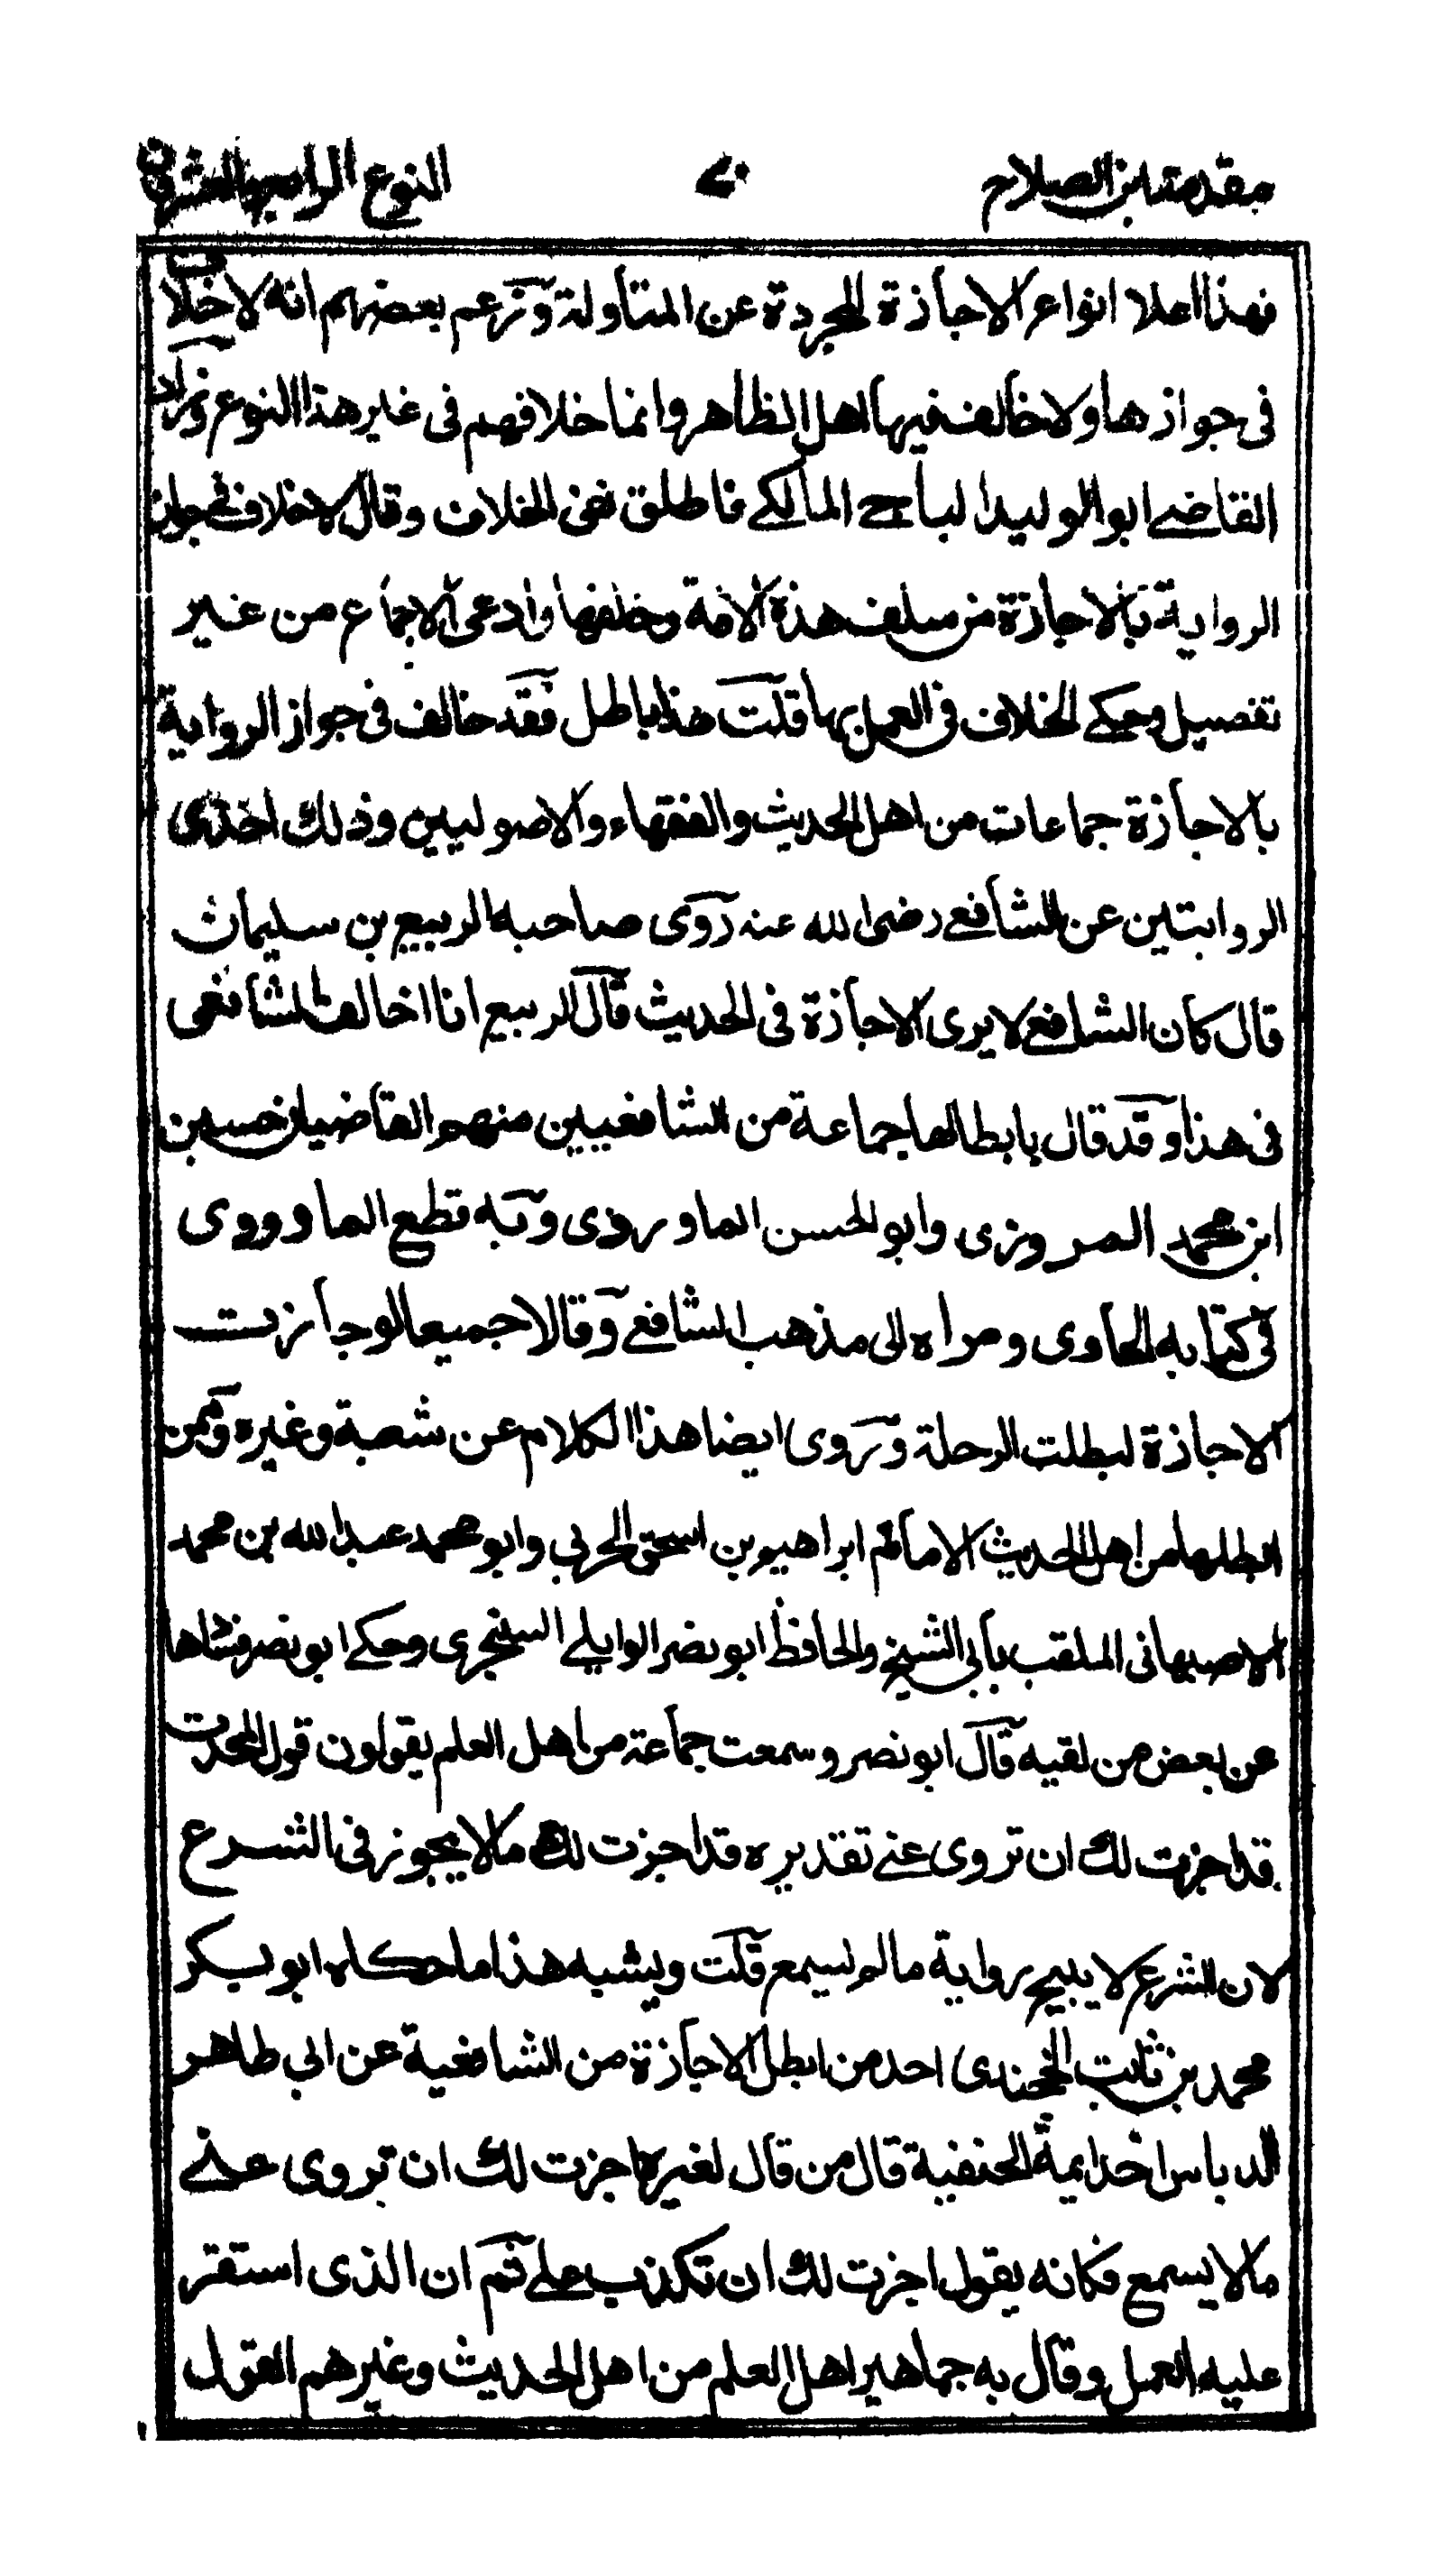 مقدمة ابن الصلاح ٧٠ النوع الرابع والعشرون
فهذا اعلا انواع الاجازة المجردة عن المناولة وزعم بعضهم انه لا خلاف
فى جوازها ولا خالف فيها اهل الظاهر وانما خلافهم فى غير هذا النوع وزاد
القاضے ابو الوليد الباجے المالكے فاطلق نفى الخلاف وقال لا خلاف فى جواز
الرواية بالاجازة من سلف هذه الامة وخلفها وادعى الاجماع من غير
تفصيل وحكے الخلاف فى العمل بها قلت هذا باطل فقد خالف فى جواز الرواية
بالاجازة جماعات من اهل الحديث والفقهاء والاصوليين وذلك احدى
الروايتين عن الشافعے رضى الله عنه روى صاحبه الربيع بن سليمان
قال كان الشافعے لا يرى الاجازة فى الحديث قال الربيع انا اخالف الشافعى
فى هذا وقد قال بابطالها جماعة من الشافعيين منهم القاضيان حسين بن
ابن محمد المروزى وابو الحسن الماوردى وبه قطع الماوردى
فى كتابه الحاوى وعزاه الى مذهب الشافعے وقالا جميعا لو جازت
الاجازة لبطلت الرحلة وروى ايضا هذا الكلام عن شعبة وغيره وممن
ابطلها من اهل الحديث الامام ابراهيم بن اسحق الحربي وابو محمد عبد الله بن محمد
الاصبهانى الملقب بابى الشيخ والحافظ ابو نصر الوايلے السنجزى وحكے ابو نصر فسادها
عن بعض من لقيه قال ابو نصر وسمعت جماعة من اهل العلم يقولون قول المحدث
قد اجزت لك ان تروى عنے تقديره قد اجزت لك ما لا يجوز فى الشرع
لان الشرع لا يبيح رواية ما لم يسمع قلت ويشبه هذا ما حكاه ابو بكر
محمد بن ثابت الخجندى احد من ابطل الاجازة من الشافعية عن ابى طاهر
الدباس احد ايمة الحنفية قال من قال لغيره اجزت لك ان تروى عنے
ما لا يسمع فكانه يقول اجزت لك ان تكذب علے ثم ان الذى استقر
عليه العمل وقال به جماهير اهل العلم من اهل الحديث وغيرهم القول